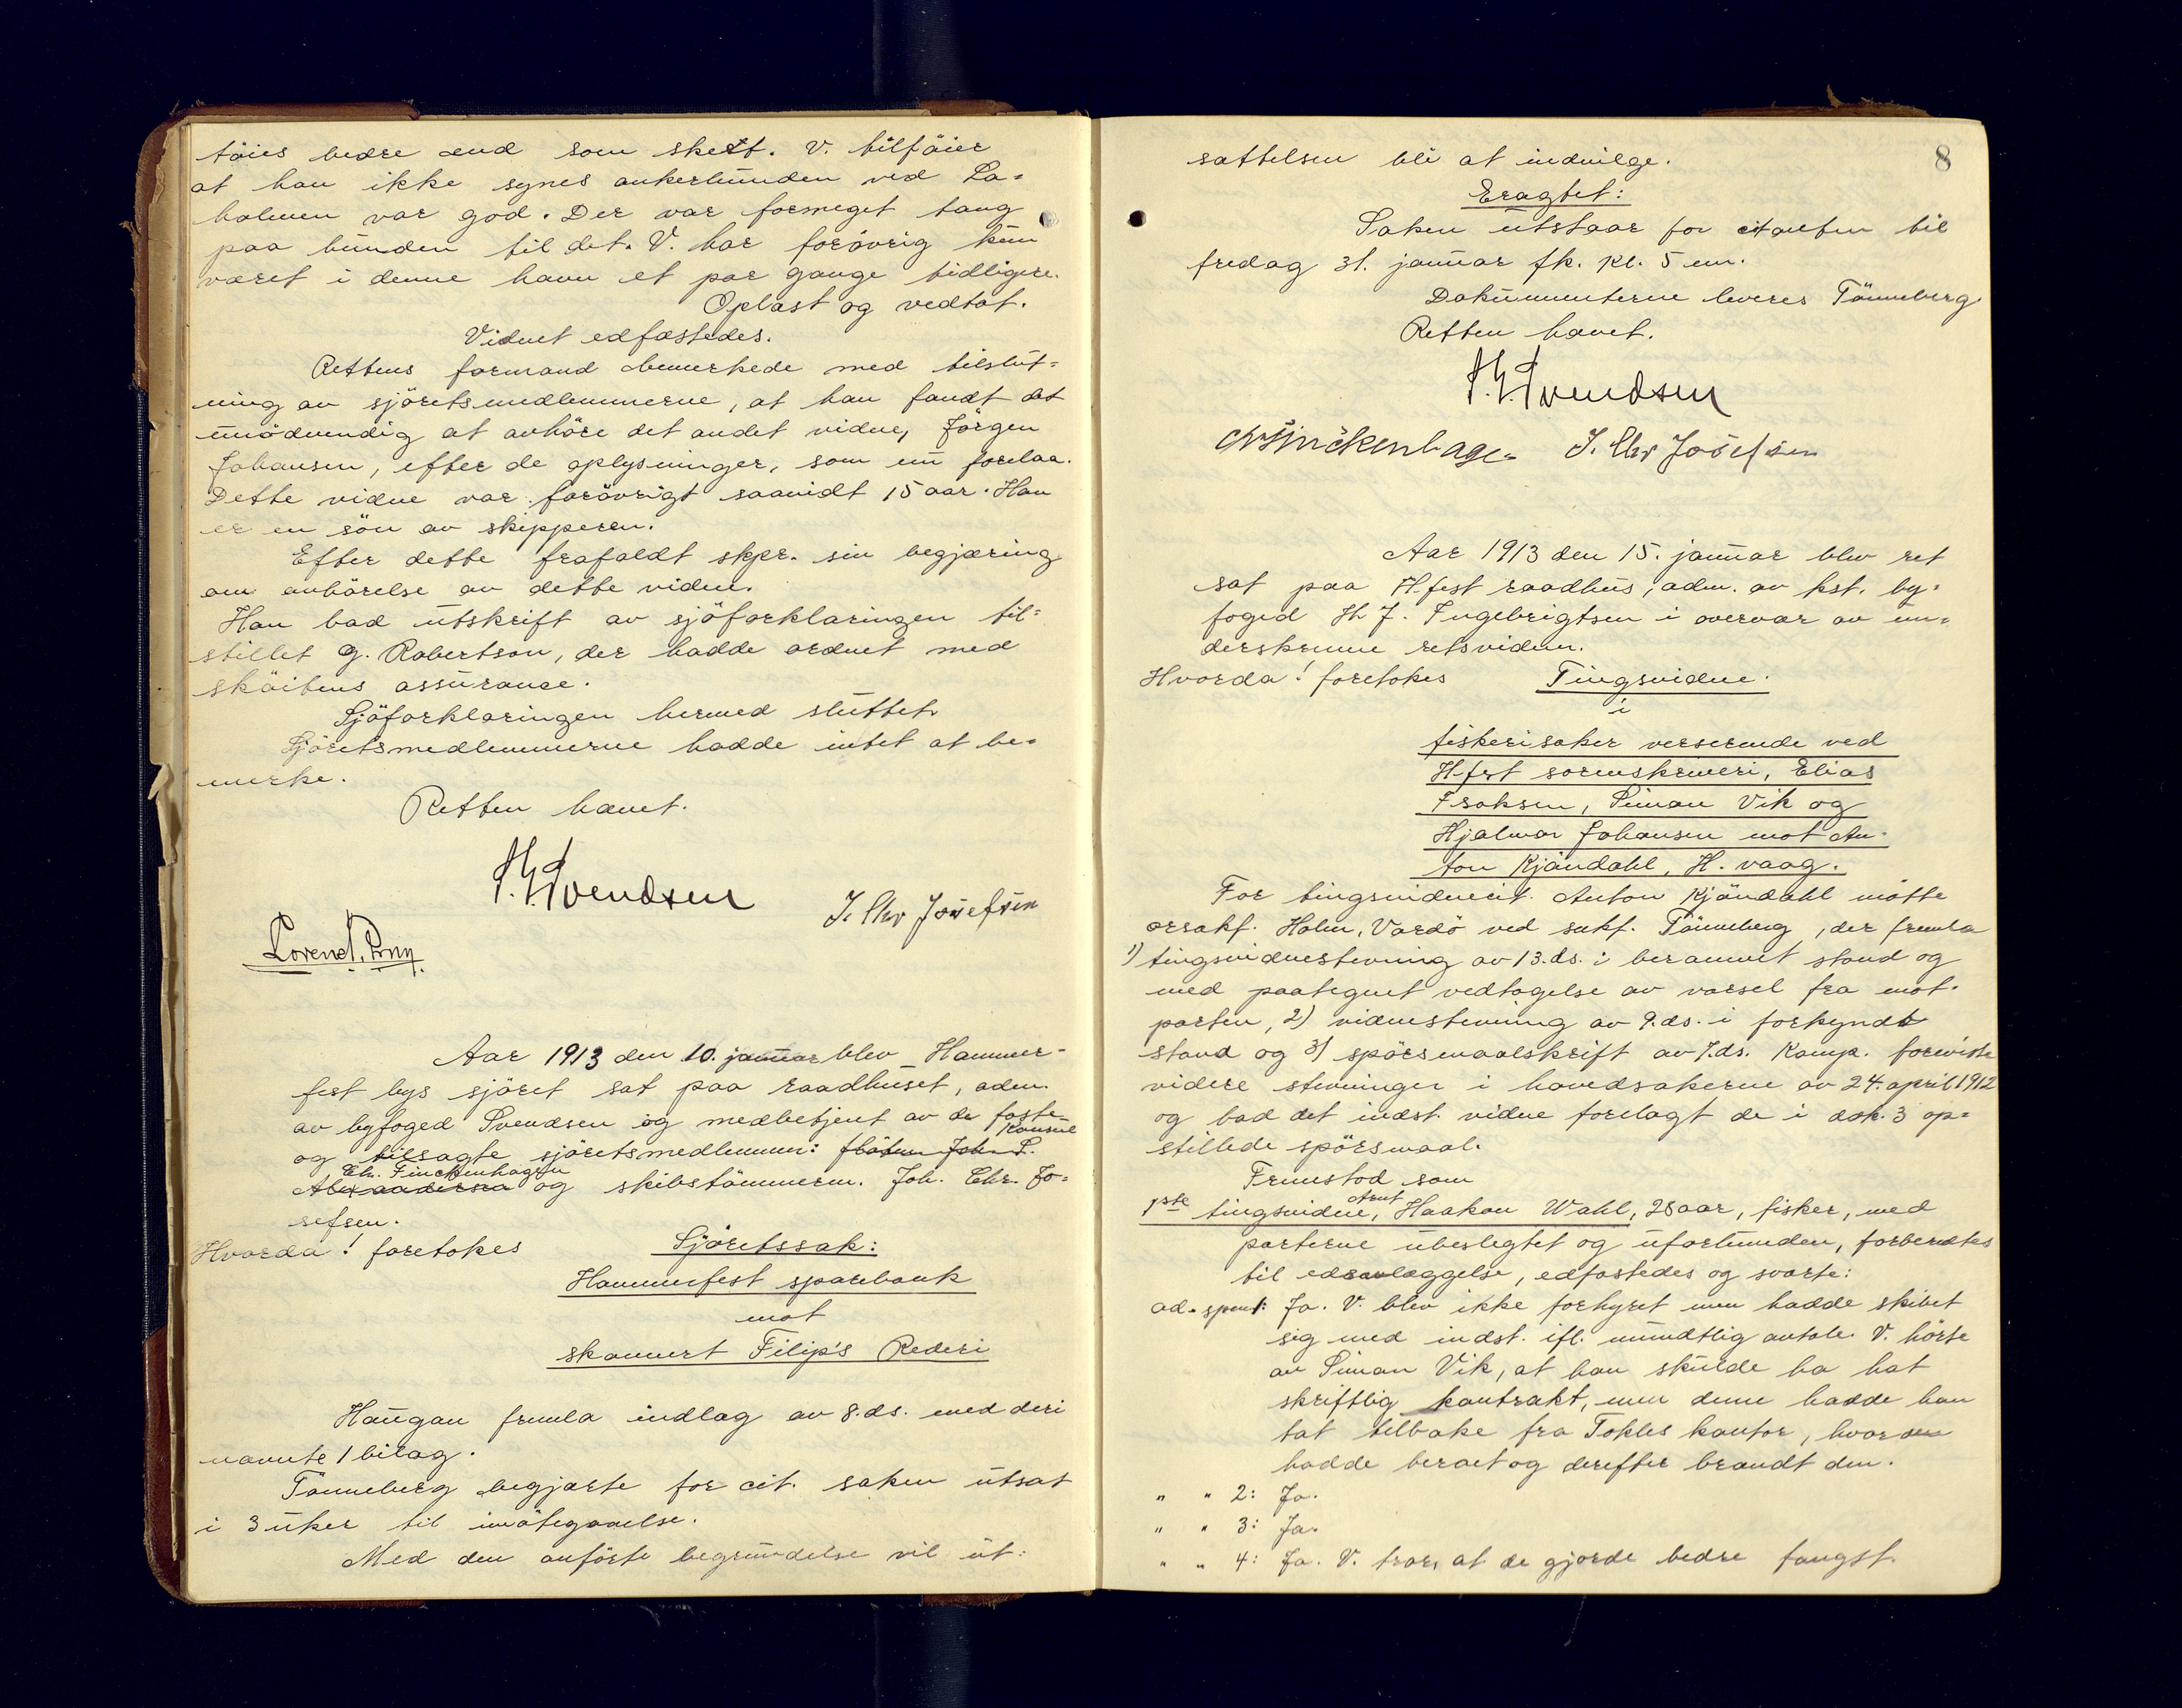 töies bedre end som skett. V. tilföier
at han ikke synes ankerbunden ved La-
holmen var god. Der var formeget tang
paa bunden til det. V. har forövrig kun
været i denne havn et par gange tidligere.
Oplæst og vedtat.
Vidnet edfæstedes.
Rettens formand bemerkede med tilslut-
ning av sjöretsmedlemmerne, at han fandt det
unödvendig at avhöre det andet vidne, Jörgen
Johansen, efter de oplysninger, som nu forelaa.
Dette vidne var forövrigt saavidt 15 aar. Han
er en sön av skipperen.
Efter dette frafaldt skpr. sin begjæring
om avhörelse av dette vidne.
Han bad utskrift av sjöforklaringen til-
stillet G. Robertson, der hadde ordnet med
sköitens assurance.
Sjöforklaringen hermed sluttet.
Sjöretsmedlemmerne hadde intet at be-
merke.
Retten hævet.
Svendsen
J. Chr Josefsen
Aar 1913 den 10. januar blev Hammer-
fest bys sjöret sat paa raadhuset, adm.
av byfoged Svendsen og medbetjent av de faste
Konsul
og tilsagte sjöretsmedlemmer: Joh. P.
Chr. Finckenhagen
og skibstömmerm. Joh. Chr. Jo-
sefsen.
Hvorda! foretokes Sjöretssak:
Hammerfest sparebank
mot
skonnert Filip's Rederi
Haugan fremla indlæg av 8. ds. med deri
nævnte 1 bilag.
Tönneberg begjærte for cit. saken utsat
i 3 uker til imötegaaelse.
Med den anförte begrundelse vil ut-
8
sættelsen bli at indvilge.
Eragtet:
Saken utstaar for citanten til
fredag 31. januar fk. kl. 5 em.
Dokumenterne leveres Tönneberg
Retten hævet.
Svendsen
Chr Finckenhagen J. Chr Josefsen
Aar 1913 den 15. januar blev ret
sat paa H.fest raadhus, adm. av kst. by-
foged H. J. Ingebrigtsen i overvær av un-
derskrevne retsvidner.
Hvorda! foretokes Tingsvidne
i
fiskerisaker verserende ved
H.fest sorenskriveri, Elias
Isaksen, Simon Vik og
Hjalmar Johansen mot An-
ton Kjöndahl, H. vaag.
For tingsvidnecit. Anton Kjöndahl mötte
orsakf. Holm, Vardö ved sakf. Tönneberg, der fremla
1) tingsvidnestevning av 13. ds. i berammet stand og
med paategnet vedtagelse av varsel fra mot-
parten, 2) vidnestevning av 9. ds. i forkyndt
stand og 3) spörsmaalskrift av 7. ds. Komp. foreviste
videre stevninger i hovedsakerne av 24. april 1912
og bad det indst. vidne forelagt de i dok. 3 op-
stillede spörsmaal.
Fremstod som
Arnt
1ste tingsvidne, Haakon Wahl, 28 aar, fisker, med
parterne ubeslegtet og uforbunden, forberedtes
til edsavlæggelse, edfæstedes og svarte:
ad. spm 1: Ja. V. blev ikke forhyret men hadde skibet
sig med indst. ifl. mundtlig avtale. V. hörte
av Simon Vik, at han skulde ha hat
skriftlig kontrakt, men denne hadde han
tat tilbake fra Tokles kontor, hvor den
hadde beroet og derefter brændt den.
" " 2: Ja.
" " 3: Ja.
" " 4: Ja. V. tror, at de gjorde bedre fangst.